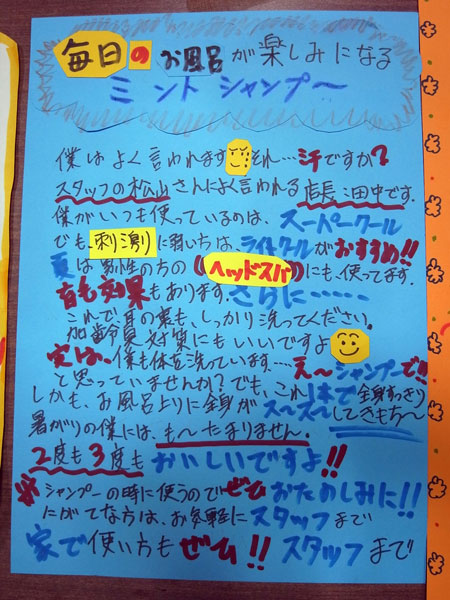 毎日のお風呂が楽しみになる
ミントシャンプ〜
僕はよく言われます それ…汗ですか?
スタッフの松山さんによく言われる店長田中です。
僕がいつも使っているのは、スーパークール
でも、刺激に弱い方は、ライトクールがおすすめ!!
夏は男性の方の((ヘッドスパ))にも、使ってます。
育毛効果もあります。さらに……
これで耳の裏も、しっかり洗ってください。
加齢臭対策にもいいですよ
実は、僕も体を洗っています…え〜シャンプーで!!
と思っていませんか?でも、これ1本で全身すっきり
しかも、お風呂上りに全身がス〜ス〜してきもち〜
暑がりの僕には、も〜たまりません。
2度も3度もおいしいですよ!!
※シャンプーの時に使うのでぜひおたのしみに!!
にがてな方は、お気軽にスタッフまで
家で使い方もぜひ!!スタッフまで